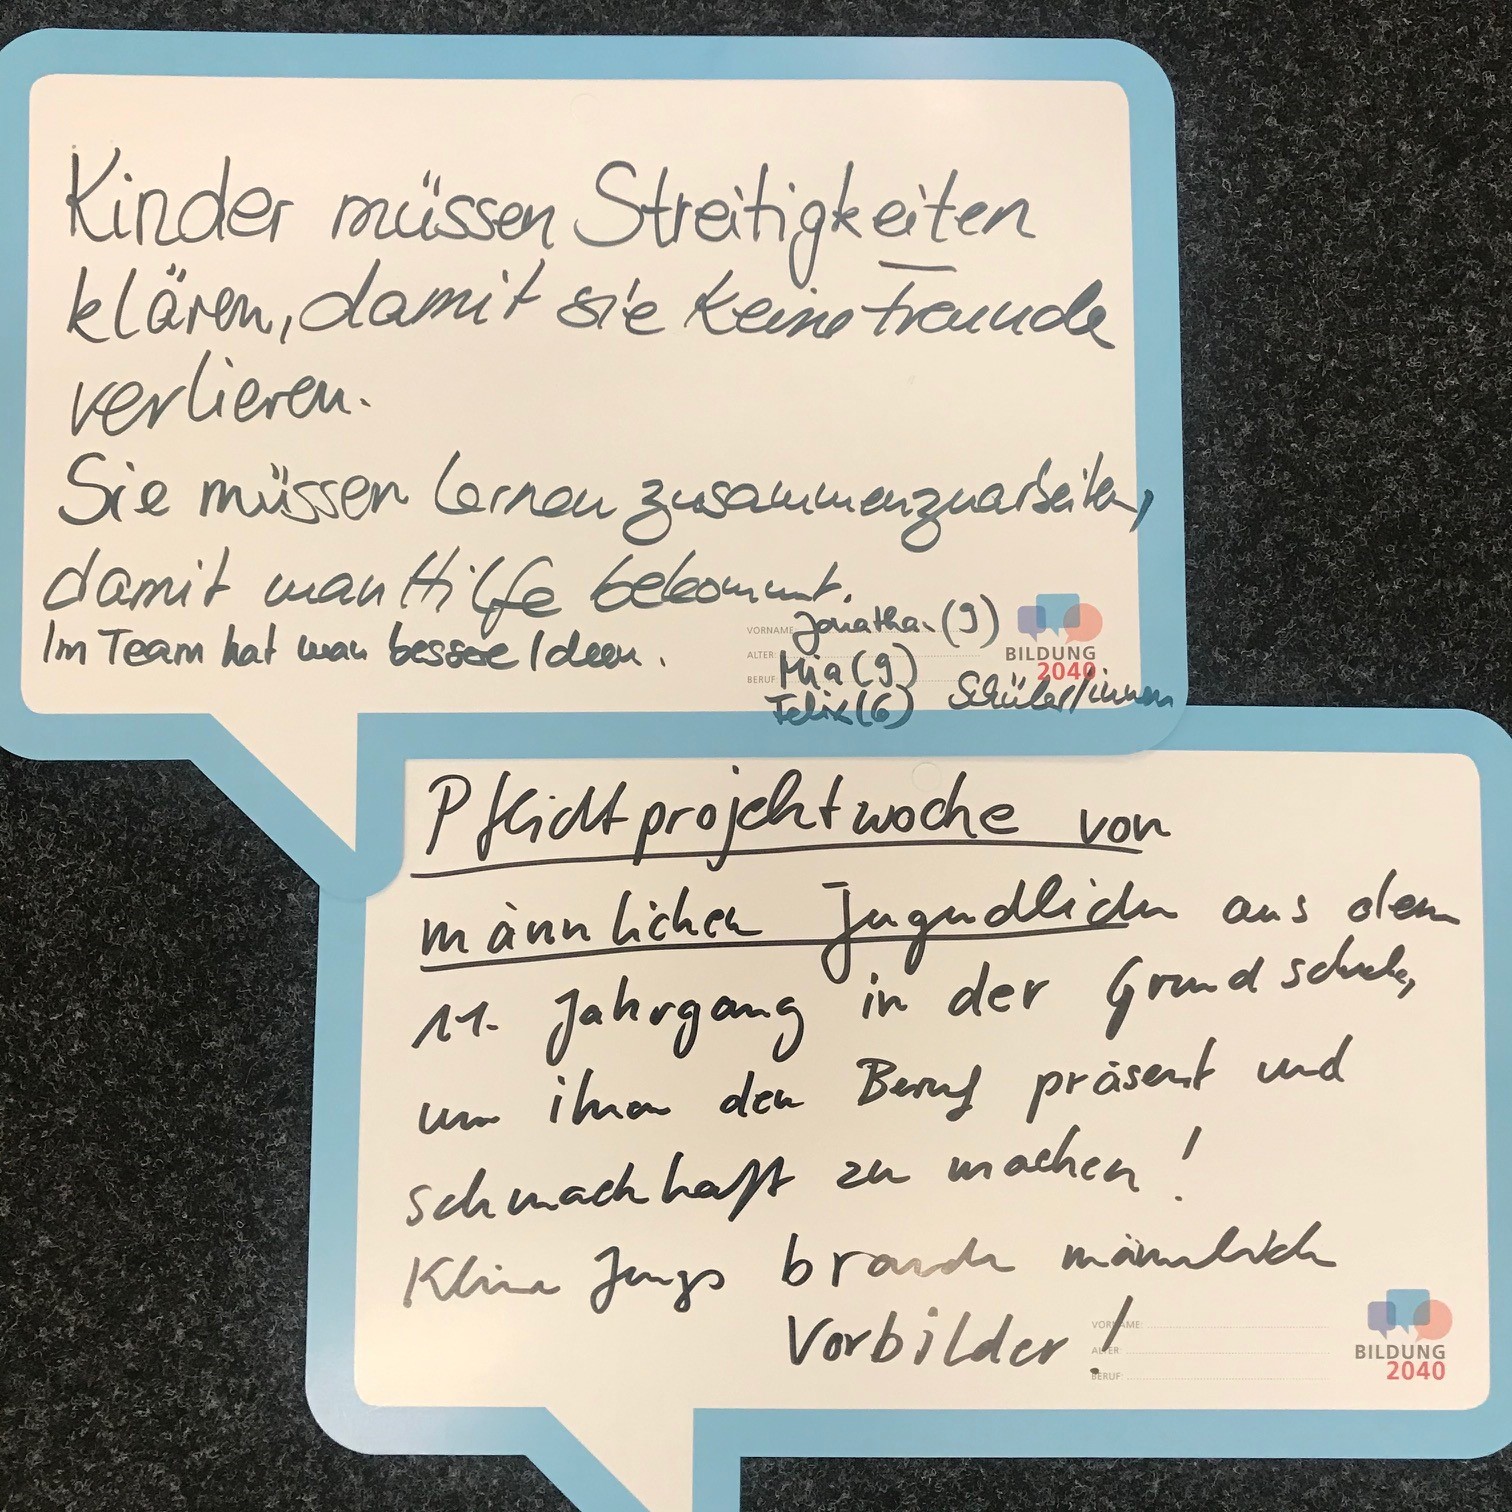 Kinder müssen Streitigkeiten
klären, damit sie keine Freunde
verlieren.
Sie müssen lernen zusammenzuarbeiten,
damit man Hilfe bekommt.
Im Team hat man bessere Ideen.
VORNAME: Jonathan (9)
ALTER: Mia (9)
BERUF: Felix (6) Schüler/innen
BILDUNG
2040
Pflichtprojektwoche von
männlichen Jugendlichen aus dem
11. Jahrgang in der Grundschule,
um ihnen den Beruf präsent und
schmackhaft zu machen!
Kleine Jungs brauchen männliche
Vorbilder!
VORNAME:
ALTER:
BERUF:
BILDUNG
2040